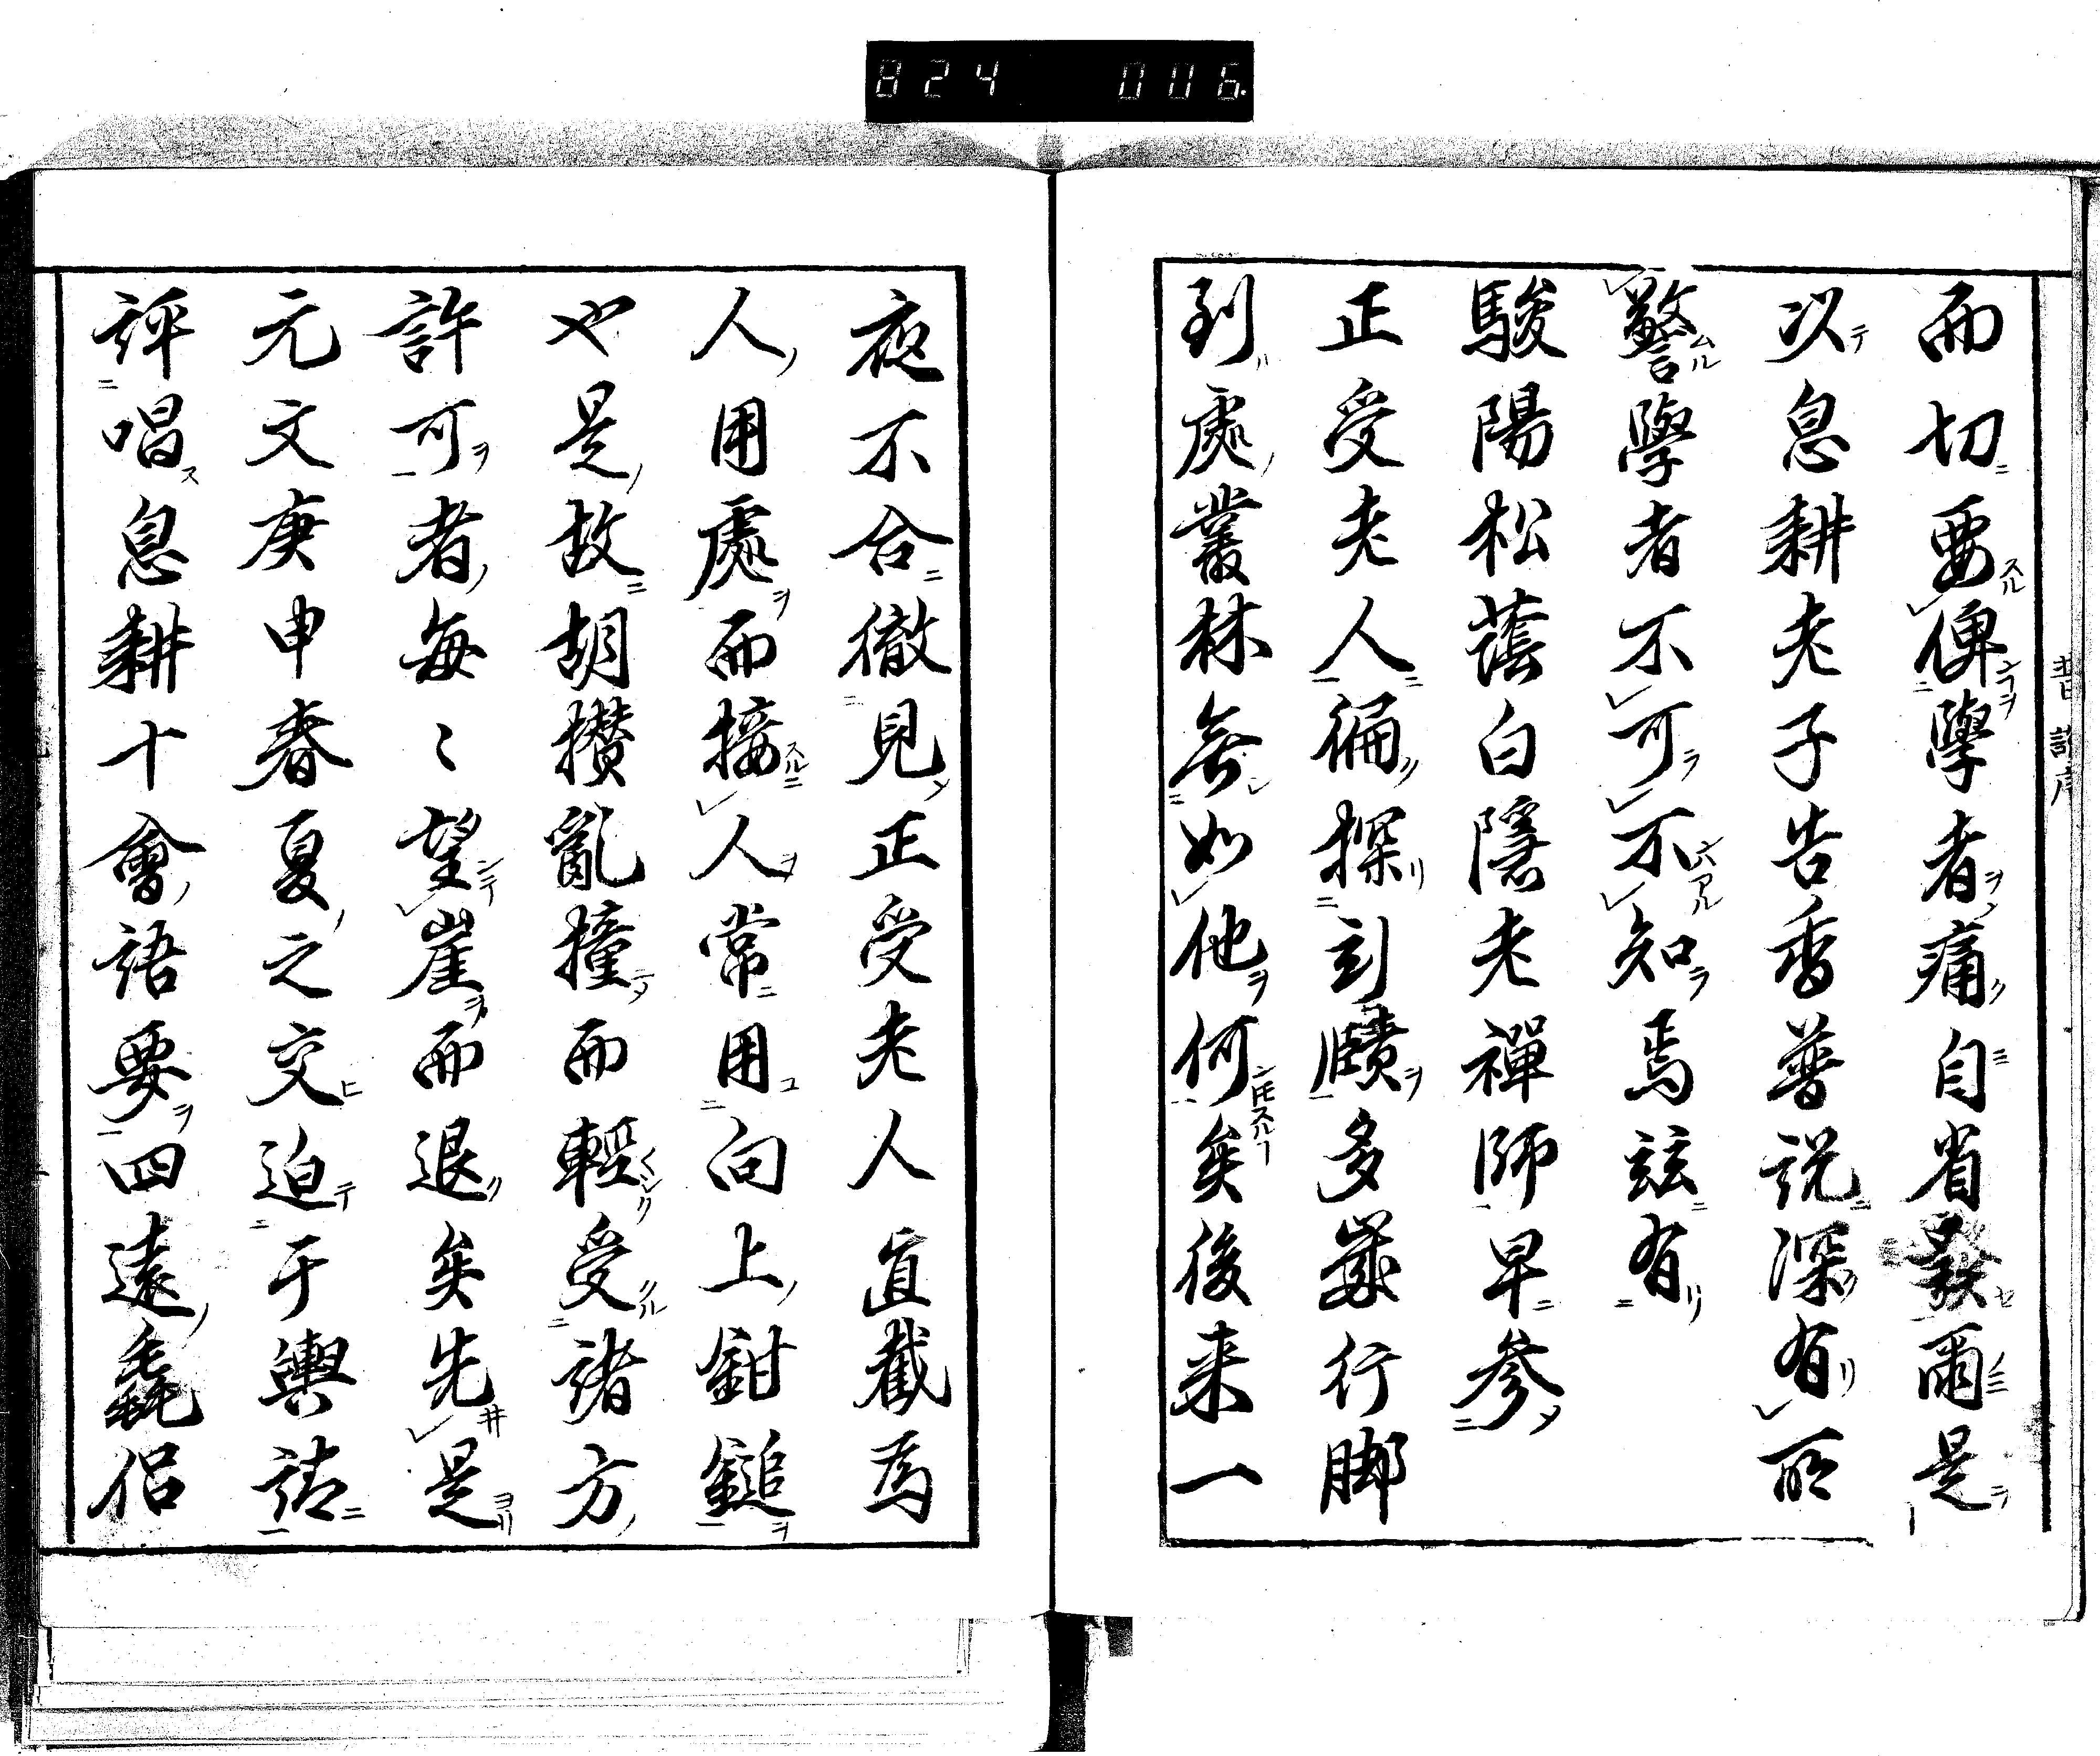 824 006
普説序
而切要俾學者痛自省發爾是
以息耕老子告香普説深有所
警學者不可不知焉玆有
駿陽松蔭白隱老禪師早參
正受老人徧探玄賾多歲行脚
到處叢林無如他何矣後来一
夜不合徹見正受老人直截為
人用處而接人常用向上鉗鎚
也是故胡攅亂撞而輕受諸方
許可者每〻望崖而退矣先是
元文庚申春夏之交迫于輿請
評唱息耕十會語要四遠毳侶